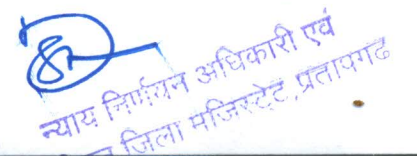 न्याय निर्णयन अधिकारी एवं
जिला मजिस्ट्रेट, प्रतापगढ